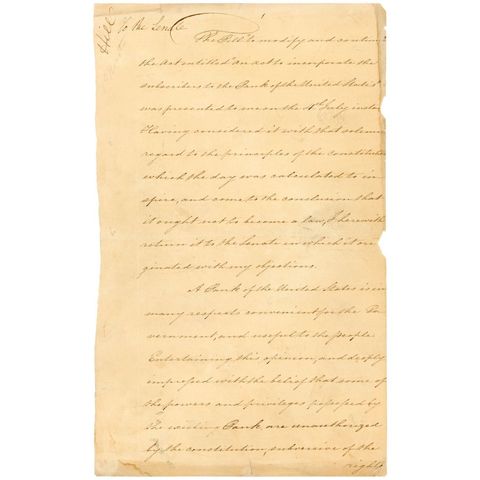 Hill
To the Senate
The Bill to modify and continue
the Act entitled "An act to incorporate the
subscribers to the Bank of the United States"
was presented to me on the 4th July instan
Having considered it with that solemn
regard to the principles of the constitution
which the day was calculated to in
spire, and come to the conclusion that
it ought not to become a law, I herewith
return it to the Senate in which it ori
ginated with my objections.
A Bank of the United States is in
many respects convenient for the Go
vernment, and useful to the people
Entertaining this opinion, and deeply
impressed with the belief that some of
the powers and privileges possessed by
the existing Bank are unauthorized
by the constitution, subversive of the
rights